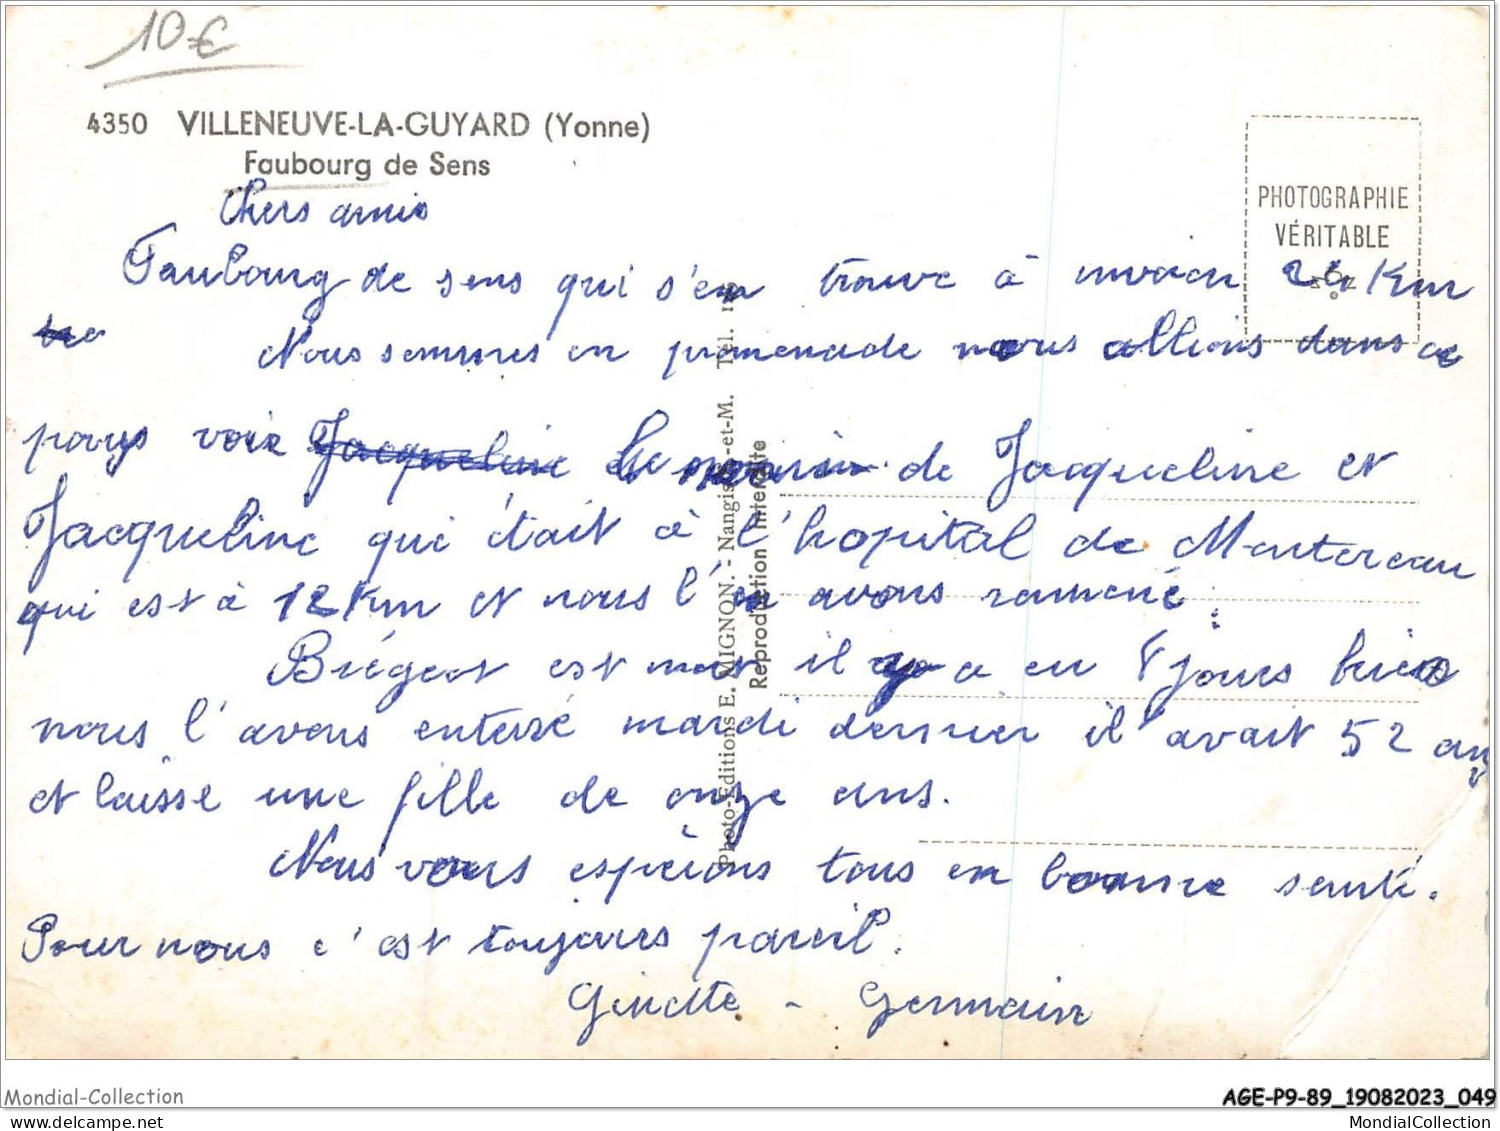 10€
4350 VILLENEUVE-LA-GUYARD (Yonne)
Faubourg de Sens
PHOTOGRAPHIE
VÉRITABLE
Chers amis
Faubourg de sens qui s'en trouve à 24 Km
Nous sommes en promenade nous allions dans ce
pays voir Jacqueline de Jacqueline et
Jacqueline qui était à l'hopital de Montereau
qui est à 12 Km et nous l'en avons ramené.
Briégeot est mort il y a eu 8 jours hier
nous l'avons enterré mardi dernier il avait 52 ans
et laisse une fille de onze ans.
Nous vous espérons tous en bonne santé.
Pour nous c'est toujours pareil.
Ginette - Germain
Photo-Editions E. MIGNON. - Nangis -et-M. Tél.
Reproduction Interdite
Mondial-Collection
AGE-P9-89_19082023_049
MondialCollection